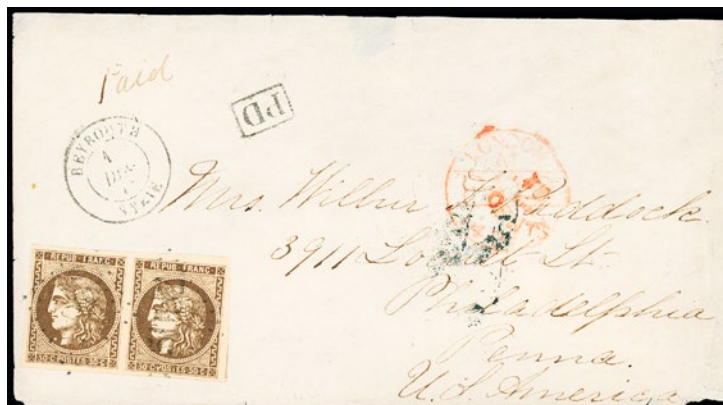 Paid
PD
BEYROUTH
1
SYRIE
LONDON
Mrs. Wilbur F. Paddock.
3911 St.
Philadelphia
Penna.
U.S. America
REPUB · FRANC
30 C POSTES 30 C
REPUB · FRANC
30 C POSTES 30 C